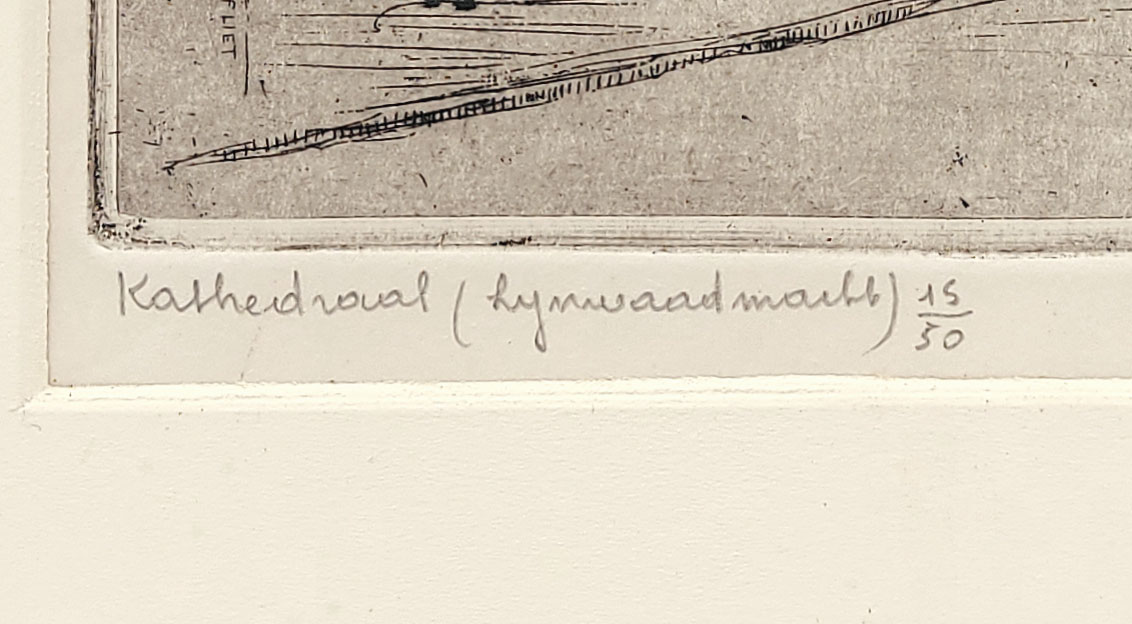 FLIET
Kathedraal (Lynwaadmarkt) 15/50